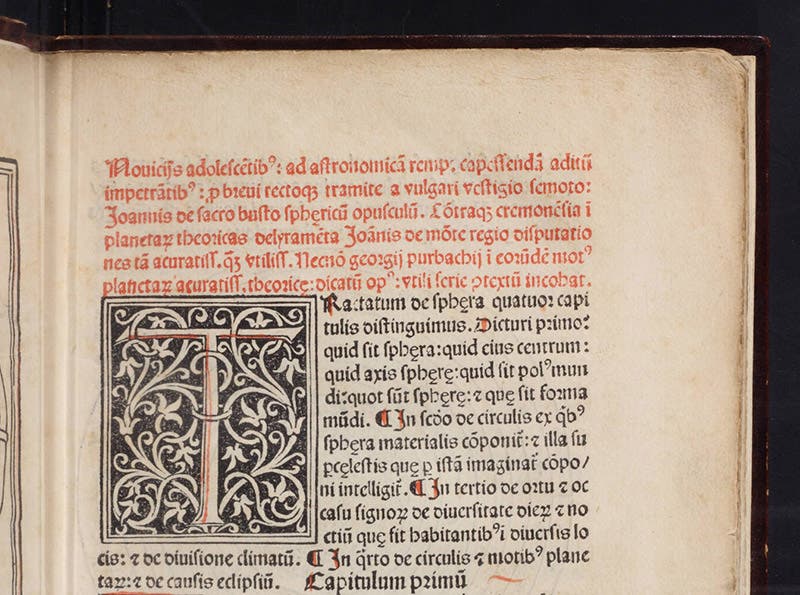 Nouicijs adolescẽtibꝰ: ad astronomicã remp. capessendã aditũ
impetrãtibꝰ: ꝓ breui rectoqꝫ tramite a vulgari vestigio semoto:
Joannis de sacro busto sphęricũ opusculũ. Cõtraqꝫ cremonẽsia ĩ
planetaꝝ theoricas delyramẽta Joãnis de mõte regio disputatio
nes tã acuratiss. qꝫ̃ vtiliss. Necnõ georgij purbachij ĩ eorũdẽ motꝰ
planetaꝝ acuratiss. theorice: dicatũ opꝰ: vtili serie ꝯtextũ incohat.
TRactatum de sphęra quatuor capi
tulis distinguimus. Dicturi primo:
quid sit sphęra: quid eius centrum:
quid axis sphęrę: quid sit polꝰ mun
di: quot sũt sphęrę: ⁊ quę sit forma
mũdi. ¶ In scdo de circulis ex qͥbꝰ
sphęra materialis cõponit̃: ⁊ illa su
ꝑcęlestis quę ꝑ istã imaginat̃ cõpo/
ni intelligit̃. ¶ In tertio de ortu ⁊ oc
casu signoꝝ de diuersitate dieꝝ ⁊ no
ctiũ quę fit habitantibꝰ ĩ diuersis lo
cis: ⁊ de diuisione climatũ. ¶ In q̃rto de circulis ⁊ motibꝰ plane
taꝝ: ⁊ de causis eclipsiũ. Capitulum primũ